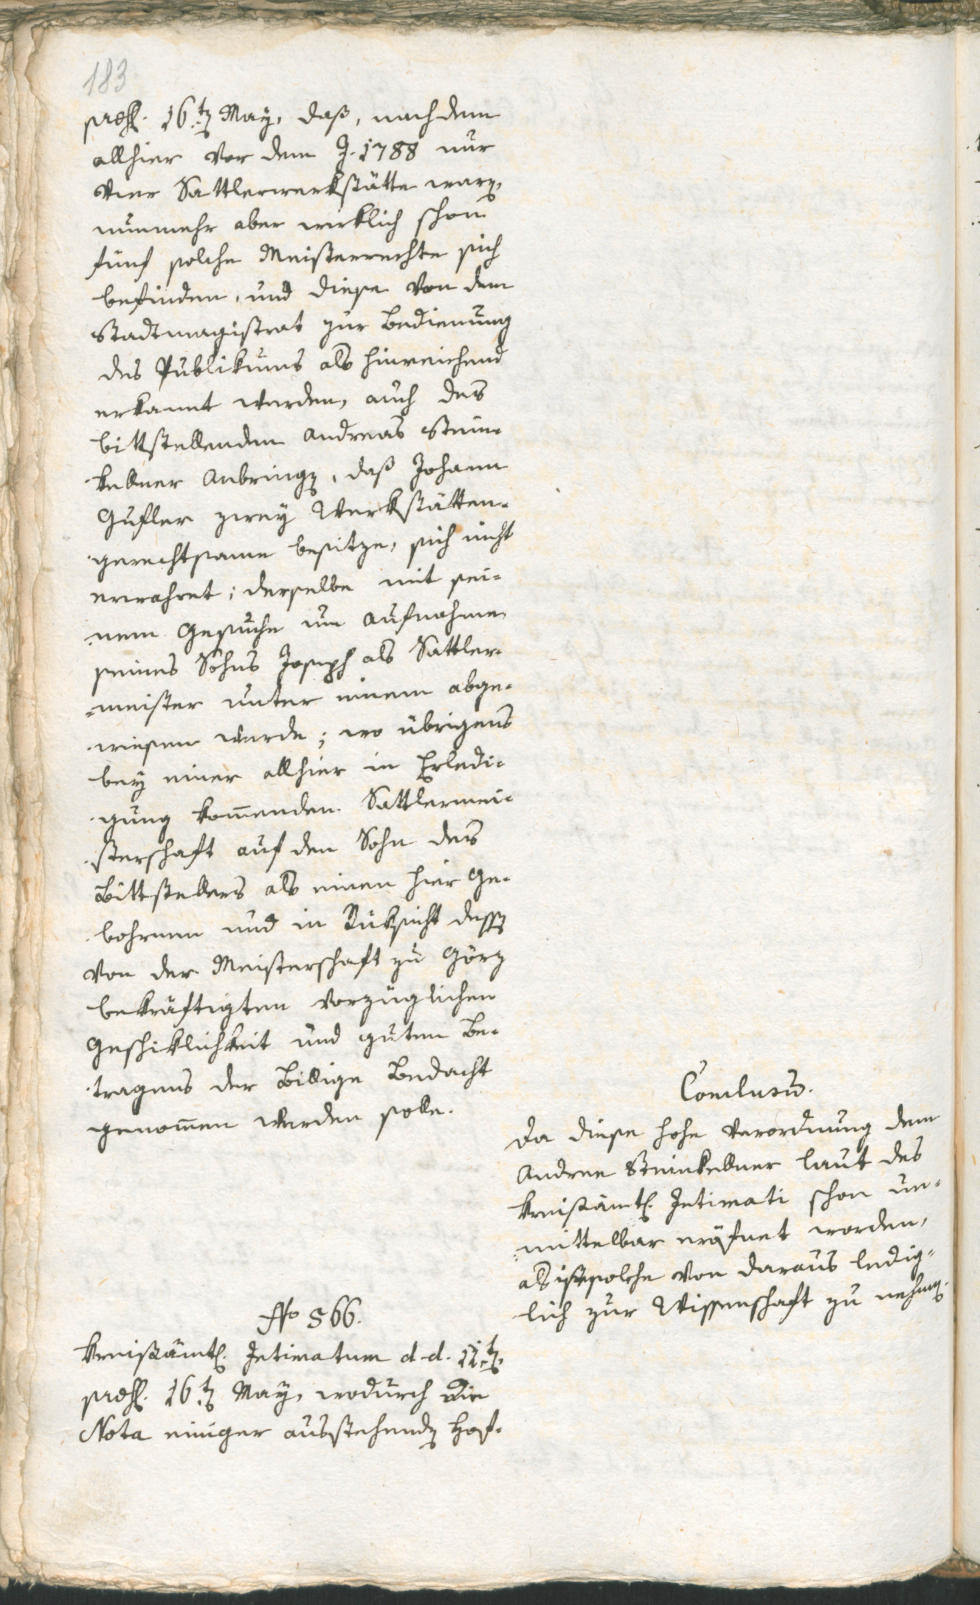 183
præs. 16.ten May, daß, nachdem
allhier vor dem J. 1788 nur
vier Sattlerwerkstätte waren,
nunmehr aber wirklich schon
fünf solche Meisterrechte sich
befinden, und diese von dem
Stadtmagistrat zur Bedienung
des Publikums als hinreichend
erkannt werden, auch des
bittstellenden Andreas Stein-
kellner Anbringen, daß Johann
Gufler zwey Werkstätten-
gerechtsame besitze, sich nicht
erwahret; derselbe mit sei-
nem Gesuche um Aufnahme
seines Sohns Joseph als Sattler-
meister unter einem abge-
wiesen wurde; wo übrigens
bey einer allhier in Erledi-
gung kom̄enden Sattlermei-
sterschaft auf den Sohn des
Bittstellers als einen hier Ge-
bohrnen und in Rüksicht dessen
von der Meisterschaft zu Görz
bekräftigten vorzüglichen
Geschiklichkeit und guten Be-
tragens der billige Bedacht
genom̄en werden solle.
Conclusum.
Da diese hohe Verordnung dem
Andree Steinkellner laut des
kreisämtl. Intimati schon un-
mittelbar eröfnet worden,
als ist solche von daraus ledig-
lich zur Wissenschaft zu nehmen.
No 866.
Kreisämtl. Intimatum d.d. 11.ten,
præs. 16.ten May, wodurch die
Nota einiger ausstehenden Hof-